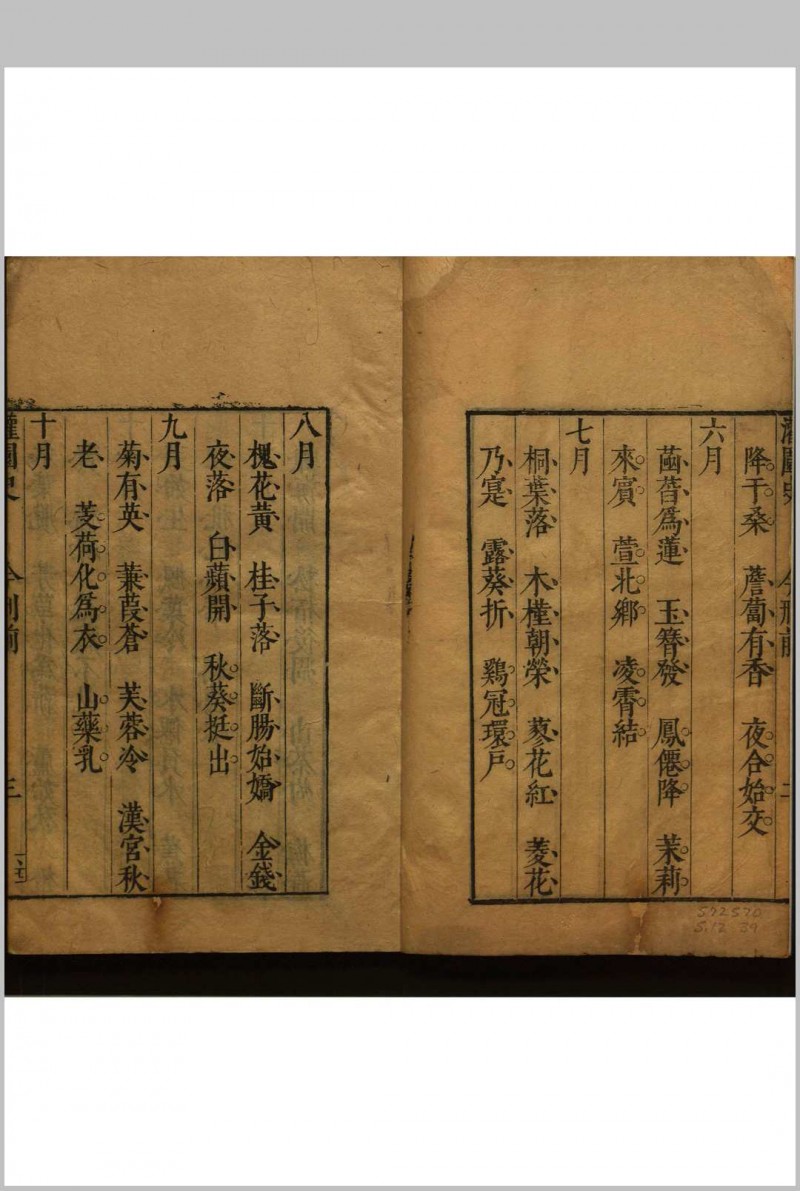 灌園史 今刑前 二
降于桑 薝蔔有香 夜合始交
六月
菡萏爲蓮 玉簪發 鳳僊降 茉莉
來賓 萱北鄉 凌霄結
七月
桐葉落 木槿朝榮 蓼花紅 菱花
乃寔 露葵折 鷄冠環戶
572570
S.12 39
八月
槐花黃 桂子落 斷腸始嬌 金錢
夜落 白蘋開 秋葵挺出
九月
菊有英 蒹葭蒼 芙蓉冷 漢宮秋
老 芰荷化爲衣 山藥乳
十月
灌園史 今刑前 三